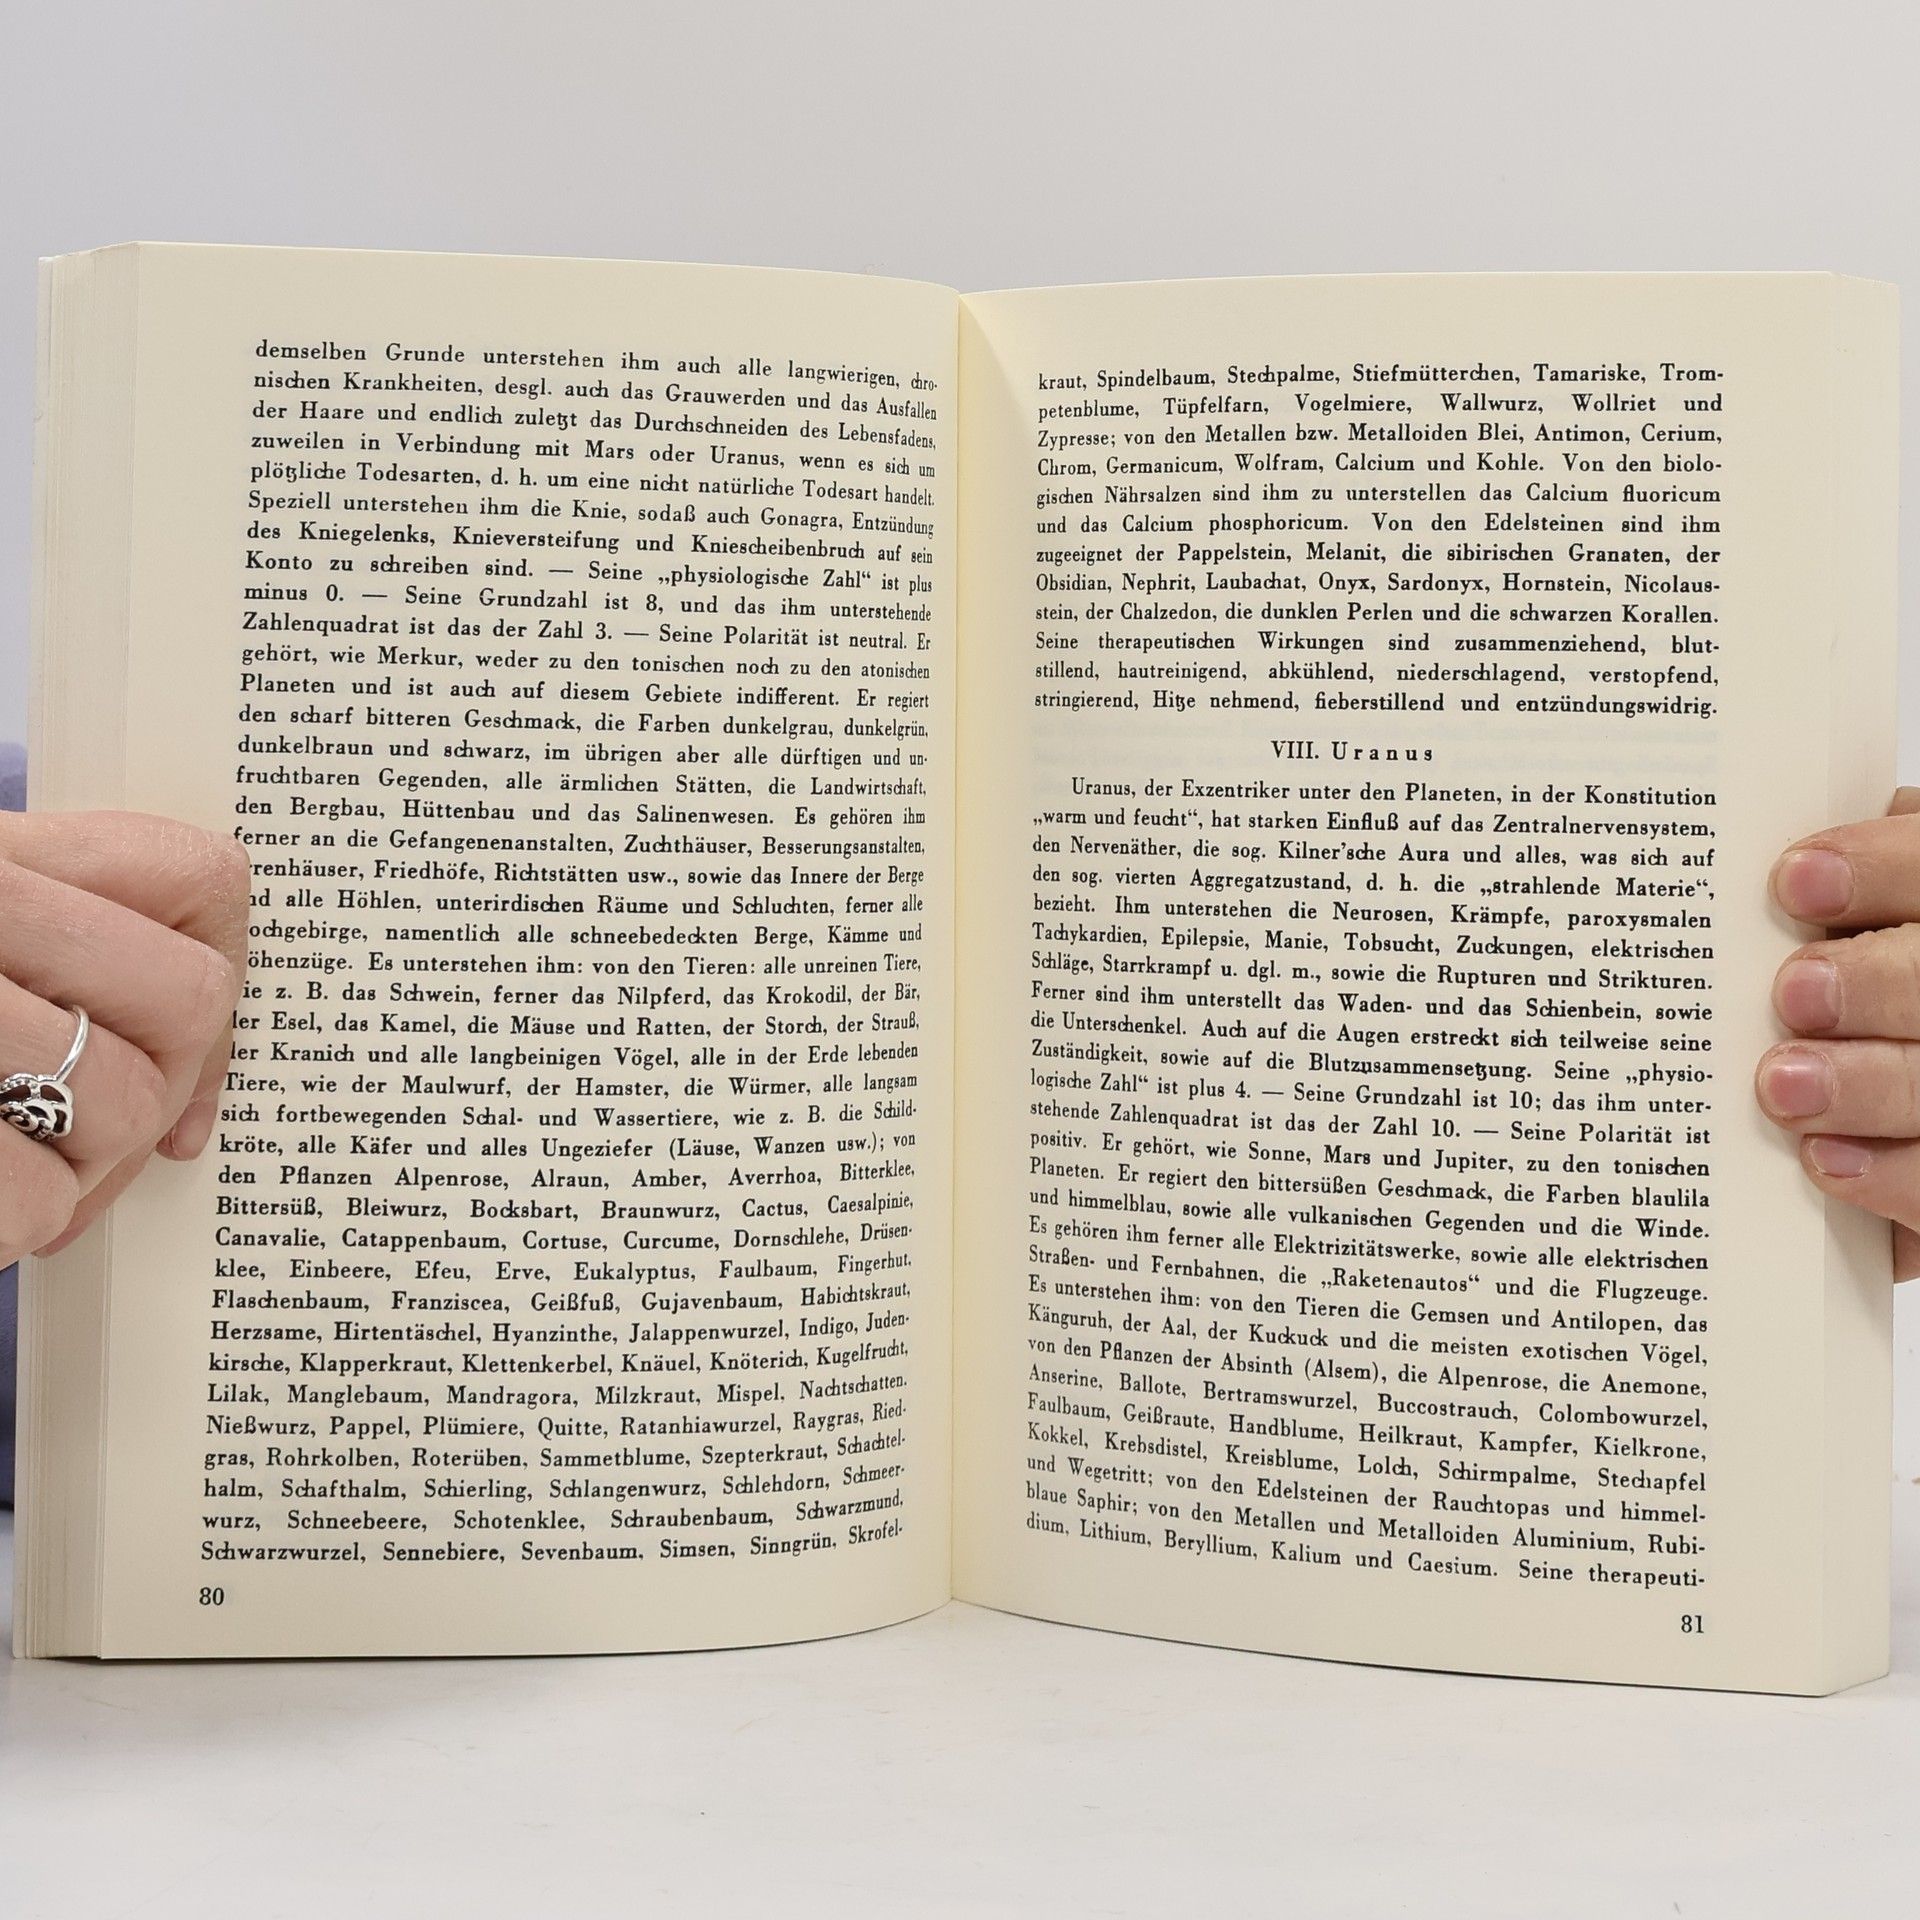 demselben Grunde unterstehen ihm auch alle langwierigen, chro-
nischen Krankheiten, desgl. auch das Grauwerden und das Ausfallen
der Haare und endlich zuletzt das Durchschneiden des Lebensfadens,
zuweilen in Verbindung mit Mars oder Uranus, wenn es sich um
plötzliche Todesarten, d. h. um eine nicht natürliche Todesart handelt.
Speziell unterstehen ihm die Knie, sodaß auch Gonagra, Entzündung
des Kniegelenks, Knieversteifung und Kniescheibenbruch auf sein
Konto zu schreiben sind. — Seine „physiologische Zahl“ ist plus
minus 0. — Seine Grundzahl ist 8, und das ihm unterstehende
Zahlenquadrat ist das der Zahl 3. — Seine Polarität ist neutral. Er
gehört, wie Merkur, weder zu den tonischen noch zu den atonischen
Planeten und ist auch auf diesem Gebiete indifferent. Er regiert
den scharf bitteren Geschmack, die Farben dunkelgrau, dunkelgrün,
dunkelbraun und schwarz, im übrigen aber alle dürftigen und un-
fruchtbaren Gegenden, alle ärmlichen Stätten, die Landwirtschaft,
den Bergbau, Hüttenbau und das Salinenwesen. Es gehören ihm
ferner an die Gefangenenanstalten, Zuchthäuser, Besserungsanstalten,
rrenhäuser, Friedhöfe, Richtstätten usw., sowie das Innere der Berge
nd alle Höhlen, unterirdischen Räume und Schluchten, ferner alle
ochgebirge, namentlich alle schneebedeckten Berge, Kämme und
öhenzüge. Es unterstehen ihm: von den Tieren: alle unreinen Tiere,
ie z. B. das Schwein, ferner das Nilpferd, das Krokodil, der Bär,
der Esel, das Kamel, die Mäuse und Ratten, der Storch, der Strauß,
der Kranich und alle langbeinigen Vögel, alle in der Erde lebenden
Tiere, wie der Maulwurf, der Hamster, die Würmer, alle langsam
sich fortbewegenden Schal- und Wassertiere, wie z. B. die Schild-
kröte, alle Käfer und alles Ungeziefer (Läuse, Wanzen usw.); von
den Pflanzen Alpenrose, Alraun, Amber, Averrhoa, Bitterklee,
Bittersüß, Bleiwurz, Bocksbart, Braunwurz, Cactus, Caesalpinie,
Canavalie, Catappenbaum, Cortuse, Curcume, Dornschlehe, Drüsen-
klee, Einbeere, Efeu, Erve, Eukalyptus, Faulbaum, Fingerhut,
Flaschenbaum, Franziscea, Geißfuß, Gujavenbaum, Habichtskraut,
Herzsame, Hirtentäschel, Hyanzinthe, Jalappenwurzel, Indigo, Juden-
kirsche, Klapperkraut, Klettenkerbel, Knäuel, Knöterich, Kugelfrucht,
Lilak, Manglebaum, Mandragora, Milzkraut, Mispel, Nachtschatten.
Nießwurz, Pappel, Plümiere, Quitte, Ratanhiawurzel, Raygras, Ried-
gras, Rohrkolben, Roterüben, Sammetblume, Szepterkraut, Schachtel-
halm, Schafthalm, Schierling, Schlangenwurz, Schlehdorn, Schmeer-
wurz, Schneebeere, Schotenklee, Schraubenbaum, Schwarzmund,
Schwarzwurzel, Sennebiere, Sevenbaum, Simsen, Sinngrün, Skrofel-
80
kraut, Spindelbaum, Stechpalme, Stiefmütterchen, Tamariske, Trom-
petenblume, Tüpfelfarn, Vogelmiere, Wallwurz, Wollriet und
Zypresse; von den Metallen bzw. Metalloiden Blei, Antimon, Cerium,
Chrom, Germanicum, Wolfram, Calcium und Kohle. Von den biolo-
gischen Nährsalzen sind ihm zu unterstellen das Calcium fluoricum
und das Calcium phosphoricum. Von den Edelsteinen sind ihm
zugeeignet der Pappelstein, Melanit, die sibirischen Granaten, der
Obsidian, Nephrit, Laubachat, Onyx, Sardonyx, Hornstein, Nicolaus-
stein, der Chalzedon, die dunklen Perlen und die schwarzen Korallen.
Seine therapeutischen Wirkungen sind zusammenziehend, blut-
stillend, hautreinigend, abkühlend, niederschlagend, verstopfend,
stringierend, Hitze nehmend, fieberstillend und entzündungswidrig.
VIII. Uranus
Uranus, der Exzentriker unter den Planeten, in der Konstitution
„warm und feucht“, hat starken Einfluß auf das Zentralnervensystem,
den Nervenäther, die sog. Kilner'sche Aura und alles, was sich auf
den sog. vierten Aggregatzustand, d. h. die „strahlende Materie“,
bezieht. Ihm unterstehen die Neurosen, Krämpfe, paroxysmalen
Tachykardien, Epilepsie, Manie, Tobsucht, Zuckungen, elektrischen
Schläge, Starrkrampf u. dgl. m., sowie die Rupturen und Strikturen.
Ferner sind ihm unterstellt das Waden- und das Schienbein, sowie
die Unterschenkel. Auch auf die Augen erstreckt sich teilweise seine
Zuständigkeit, sowie auf die Blutzusammensetzung. Seine „physio-
logische Zahl“ ist plus 4. — Seine Grundzahl ist 10; das ihm unter-
stehende Zahlenquadrat ist das der Zahl 10. — Seine Polarität ist
positiv. Er gehört, wie Sonne, Mars und Jupiter, zu den tonischen
Planeten. Er regiert den bittersüßen Geschmack, die Farben blaulila
und himmelblau, sowie alle vulkanischen Gegenden und die Winde.
Es gehören ihm ferner alle Elektrizitätswerke, sowie alle elektrischen
Straßen- und Fernbahnen, die „Raketenautos“ und die Flugzeuge.
Es unterstehen ihm: von den Tieren die Gemsen und Antilopen, das
Känguruh, der Aal, der Kuckuck und die meisten exotischen Vögel,
von den Pflanzen der Absinth (Alsem), die Alpenrose, die Anemone,
Anserine, Ballote, Bertramswurzel, Buccostrauch, Colombowurzel,
Faulbaum, Geißraute, Handblume, Heilkraut, Kampfer, Kielkrone,
Kokkel, Krebsdistel, Kreisblume, Lolch, Schirmpalme, Stechapfel
und Wegetritt; von den Edelsteinen der Rauchtopas und himmel-
blaue Saphir; von den Metallen und Metalloiden Aluminium, Rubi-
dium, Lithium, Beryllium, Kalium und Caesium. Seine therapeuti-
81